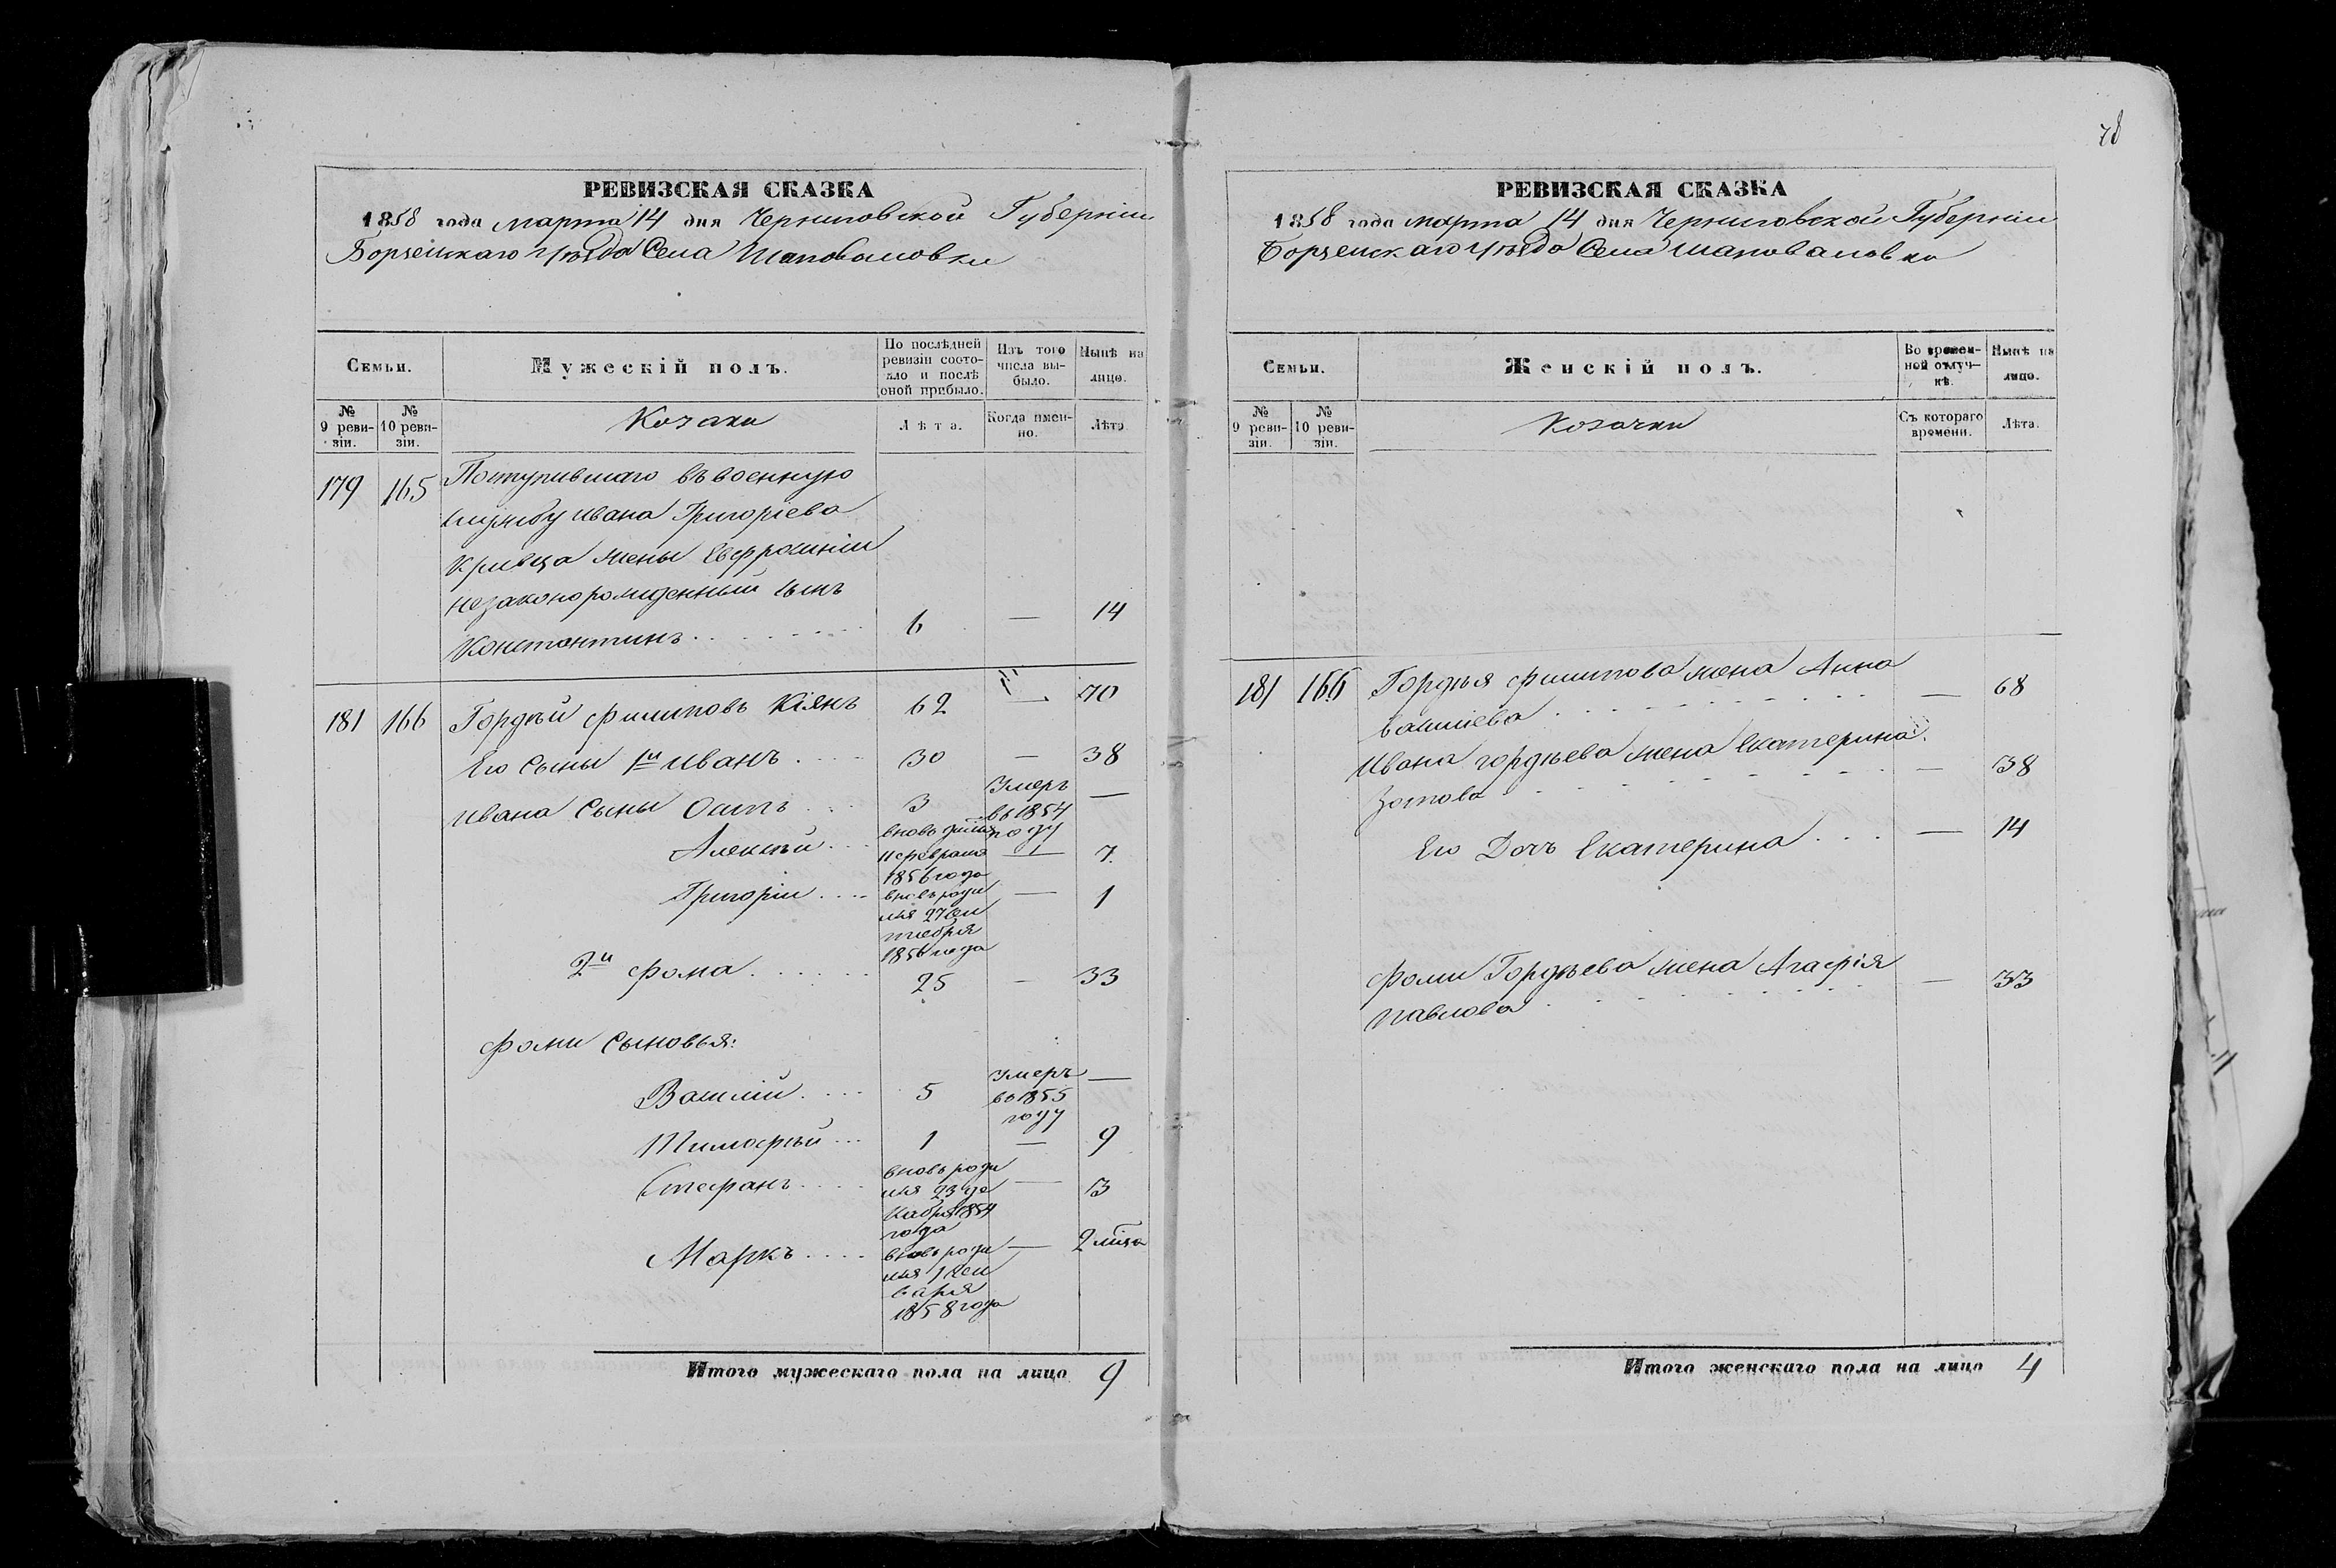 78
РЕВИЗСКАЯ СКАЗКА
1858 года марта 14 дня Черниговской Губерніи
Борзенскаго уѣзда Села Шаповаловки
Семьи.
Мужескій полъ.
По послѣдней ревизіи состояло и послѣ оной прибыло.
Изъ того числа выбыло.
Нынѣ на лицо.
№ 9 ревизіи.
№ 10 ревизіи.
Козаки
Лѣта.
Когда именно.
Лѣта
179 165 Поступившаго въ военную
службу Ивана Григоріева
Кривца жены Евфросиніи
незаконорожденный сынъ
Константинъ 6 — 14
181 166 Гордѣй Филиповъ Кіянъ 62 — 70
Его Сыны 1й Иванъ 30 — 38
Ивана Сыны Осипъ 3 Умеръ во 1854 году —
Алексѣй — 7
1856 года
Григорій вновь роди — 1
лся 27 Сен
тября
1856 года
2й Фома 25 — 33
Фомы Сыновья:
Василій 5 Умеръ во 1855 году —
Тимофѣй 1 — 9
Стефанъ вновь роди — 3
лся 23 де
кабря 1854
года
Маркъ вновь роди — 2
лся Ген
варя
1858 года
Итого мужескаго пола на лицо 9
РЕВИЗСКАЯ СКАЗКА
1858 года марта 14 дня Черниговской Губерніи
Борзенскаго уѣзда Села Шаповаловки
Семьи.
Женскій полъ.
Во временной отлучкѣ.
Нынѣ на лицо.
№ 9 ревизіи.
№ 10 ревизіи.
Козачки
Съ котораго времени.
Лѣта.
181 166 Гордѣя Филипова жена Анна
Васильева — 68
Ивана Гордѣева жена Екатерина
Зотова — 38
Его Дочь Екатерина — 14
Фомы Гордѣева жена Агафія
Павлова — 33
Итого женскаго пола на лицо 4